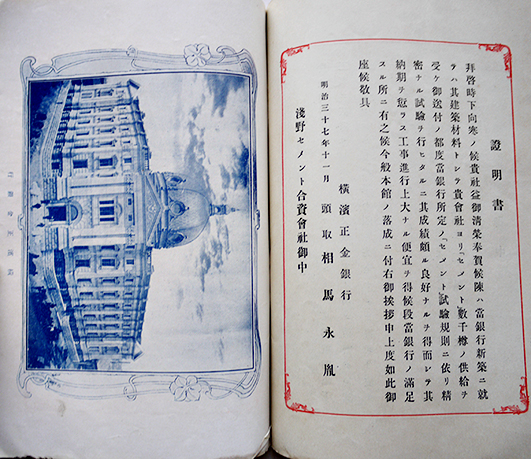 證明書
拜啓時下向寒ノ候貴社益御清榮奉賀候陳ハ當銀行新築ニ就
テハ其建築材料トシテ貴會社ヨリ「セメント」數千樽ノ供給ヲ
受ケ御送付ノ都度當銀行所定ノ「セメント」試驗規則ニ依リ精
密ナル試驗ヲ行ヒタルニ其成績頗ル良好ナルヲ得而シテ其
納期ヲ愆ラス工事進行上大ナル便宜ヲ得候段當銀行ノ滿足
スル所ニ有之候今般本館ノ落成ニ付右御挨拶申上度如此御
座候敬具
明治三十七年十一月
橫濱正金銀行
頭取相馬永胤
淺野セメント合資會社御中
橫濱正金銀行